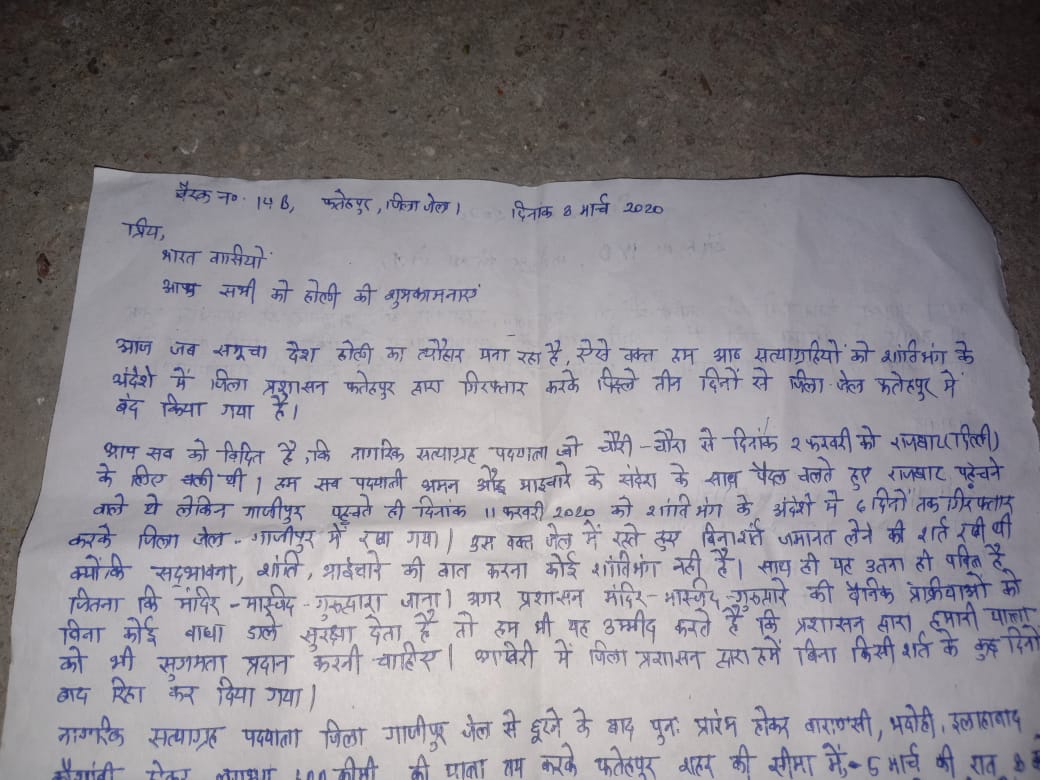 बैरक न० 14 B, फतेहपुर, जिला जेल। दिनांक 8 मार्च 2020
प्रिय,
भारत वासियों
आप सभी को होली की शुभकामनाएं
आज जब समूचा देश होली का त्यौहार मना रहा है, ऐसे वक्त हम आठ सत्याग्रहियों को शांतिभंग के
अंदेशे में जिला प्रशासन फतेहपुर द्वारा गिरफ्तार करके पिछले तीन दिनों से जिला जेल फतेहपुर में
बंद किया गया है।
आप सब को विदित है, कि नागरिक सत्याग्रह पदयात्रा जो चौरी-चौरा से दिनांक 2 फरवरी को राजघाट (दिल्ली)
के लिए चली थी। हम सब पदयात्री अमन और भाईचारे के संदेश के साथ पैदल चलते हुए राजघाट पहुंचने
वाले थे लेकिन गाजीपुर पहुंचते ही दिनांक 11 फरवरी 2020 को शांति भंग के अंदेशे में 6 दिनों तक गिरफ्तार
करके जिला जेल - गाजीपुर में रखा गया। उस वक्त जेल में रहते हुए बिनाशर्त जमानत लेने की शर्त रखी थी
क्योंकि सद्भावना, शांति, भाईचारे की बात करना कोई शांतिभंग नहीं है। साथ ही यह उतना ही पवित्र है
जितना कि मंदिर-मस्जिद-गुरुद्वारा जाना। अगर प्रशासन मंदिर-मस्जिद-गुरुद्वारे की दैनिक प्रक्रियाओं को
बिना कोई बाधा डाले सुरक्षा देता है तो हम भी यह उम्मीद करते है कि प्रशासन द्वारा हमारी यात्रा
को भी सुगमता प्रदान करनी चाहिए। आखिरी में जिला प्रशासन द्वारा हमें बिना किसी शर्त के कुछ दिनों
बाद रिहा कर दिया गया।
नागरिक सत्याग्रह पदयात्रा जिला गाजीपुर जेल से छूटने के बाद पुनः प्रारंभ होकर वाराणसी, भदोही, इलाहाबाद
होकर लगभग की यात्रा तय करके फतेहपुर शहर की सीमा में, 5 मार्च की रात 8